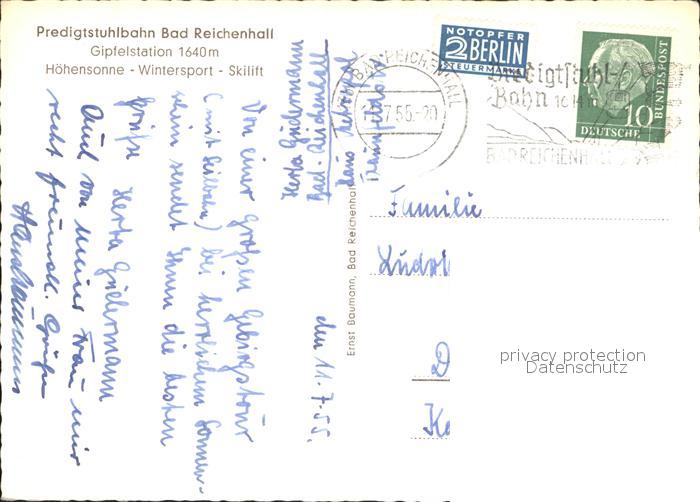 Predigtstuhlbahn Bad Reichenhall
Gipfelstation 1640m
Höhensonne - Wintersport - Skilift
NOTOPFER
2 BERLIN
STEUERMARKE
BAD REICHENHALL
7.55.-20
Predigtstuhl-
Bahn 1614 m
BAD REICHENHALL
10
DEUTSCHE
BUNDESPOST
Herta Güdermann
Bad-Reichenhall
Haus
den 11.7.55.
Von einer großen Gebirgstour
(mit Seilbahn) bei herrlichem Sonnen-
schein sendet Ihnen die besten
Grüße Herta Güdermann
Auch von meiner Frau u. mir
recht freundl. Grüße
Ernst Baumann, Bad Reichenhall
Familie
Ludol
D
privacy protection
Datenschutz